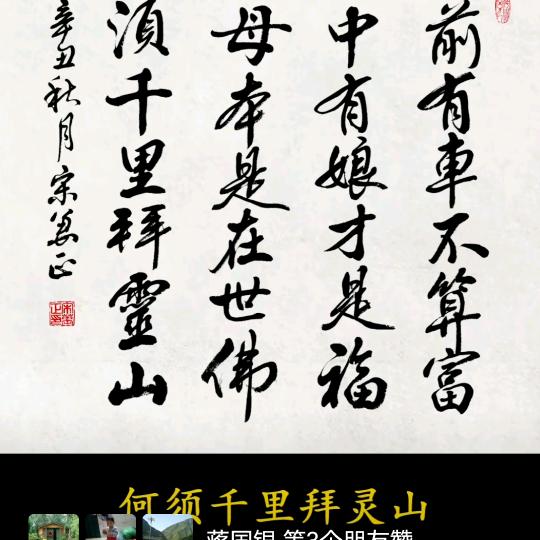 前有車不算富
中有娘才是福
母本是在世佛
須千里拜靈山
辛丑秋月宗𫍯正
何须千里拜灵山
蒋国银 等3个朋友赞